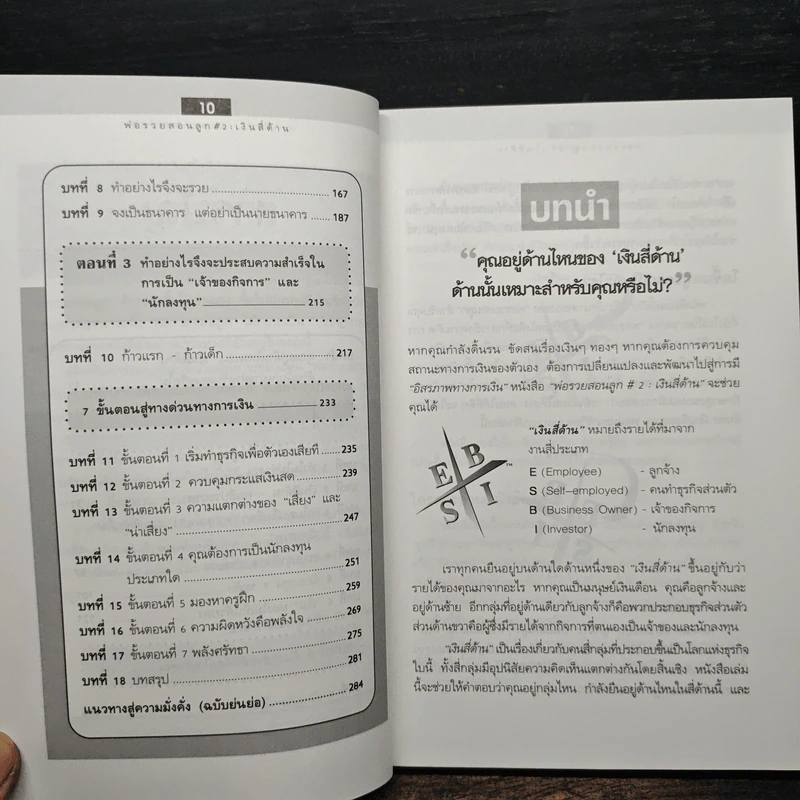 10
พ่อรวยสอนลูก#2:เงินสี่ด้าน
บทที่ 8 ทำอย่างไรจึงจะรวย 167
บทที่ 9 จงเป็นธนาคาร แต่อย่าเป็นนายธนาคาร 187
ตอนที่ 3 ทำอย่างไรจึงจะประสบความสำเร็จใน
การเป็น "เจ้าของกิจการ" และ
"นักลงทุน" 215
บทที่ 10 ก้าวแรก - ก้าวเด็ก 217
7 ขั้นตอนสู่ทางด่วนทางการเงิน 233
บทที่ 11 ขั้นตอนที่ 1 เริ่มทำธุรกิจเพื่อตัวเองเสียที 235
บทที่ 12 ขั้นตอนที่ 2 ควบคุมกระแสเงินสด 239
บทที่ 13 ขั้นตอนที่ 3 ความแตกต่างของ "เสี่ยง" และ
"น่าเสี่ยง" 247
บทที่ 14 ขั้นตอนที่ 4 คุณต้องการเป็นนักลงทุน
ประเภทใด 251
บทที่ 15 ขั้นตอนที่ 5 มองหาครูฝึก 259
บทที่ 16 ขั้นตอนที่ 6 ความผิดหวังคือพลังใจ 269
บทที่ 17 ขั้นตอนที่ 7 พลังศรัทธา 275
บทที่ 18 บทสรุป 281
แนวทางสู่ความมั่งคั่ง (ฉบับย่นย่อ) 284
บทนำ
"คุณอยู่ด้านไหนของ 'เงินสี่ด้าน'
ด้านนั้นเหมาะสำหรับคุณหรือไม่?"
หากคุณกำลังดิ้นรน ขัดสนเรื่องเงินๆ ทองๆ หากคุณต้องการควบคุม
สถานะทางการเงินของตัวเอง ต้องการเปลี่ยนแปลงและพัฒนาไปสู่การมี
"อิสรภาพทางการเงิน" หนังสือ "พ่อรวยสอนลูก # 2 : เงินสี่ด้าน" จะช่วย
คุณได้
E B
S I
™
"เงินสี่ด้าน" หมายถึงรายได้ที่มาจาก
งานสี่ประเภท
E (Employee) - ลูกจ้าง
S (Self-employed) - คนทำธุรกิจส่วนตัว
B (Business Owner) - เจ้าของกิจการ
I (Investor) - นักลงทุน
เราทุกคนยืนอยู่บนด้านใดด้านหนึ่งของ "เงินสี่ด้าน" ขึ้นอยู่กับว่า
รายได้ของคุณมาจากอะไร หากคุณเป็นมนุษย์เงินเดือน คุณคือลูกจ้างและ
อยู่ด้านซ้าย อีกกลุ่มที่อยู่ด้านเดียวกับลูกจ้างก็คือพวกประกอบธุรกิจส่วนตัว
ส่วนด้านขวาคือผู้ซึ่งมีรายได้จากกิจการที่ตนเองเป็นเจ้าของและนักลงทุน
"เงินสี่ด้าน" เป็นเรื่องเกี่ยวกับคนสี่กลุ่มที่ประกอบขึ้นเป็นโลกแห่งธุรกิจ
ใบนี้ ทั้งสี่กลุ่มมีอุปนิสัยความคิดเห็นแตกต่างกันโดยสิ้นเชิง หนังสือเล่ม
นี้จะช่วยให้คำตอบว่าคุณอยู่กลุ่มไหน กำลังยืนอยู่ด้านไหนในสี่ด้านนี้ และ